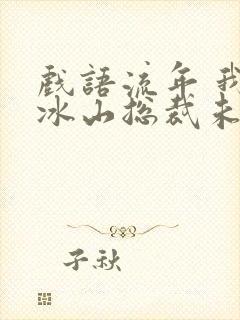 戲語流年我
冰山捴裁未
子秋